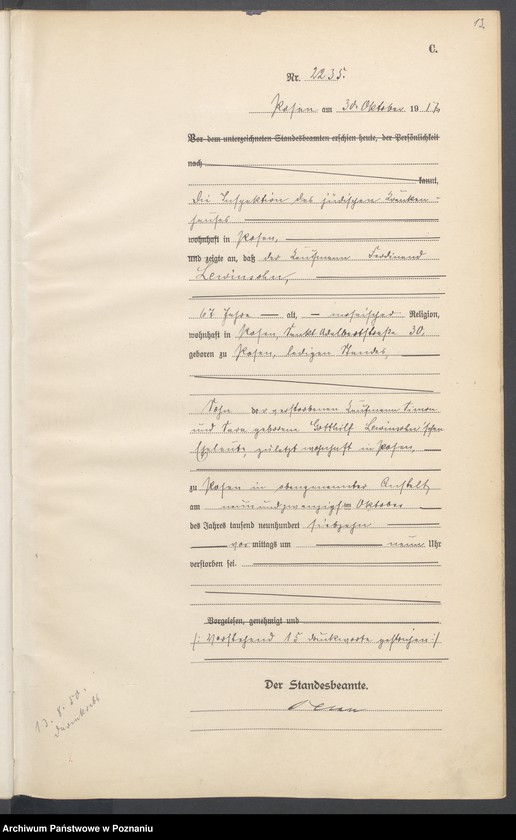 13
C.
Nr. 2235.
Posen am 30. Oktober 1917
Vor dem unterzeichneten Standesbeamten erschien heute, der Persönlichkeit
nach
kannt,
Die Inspektion des jüdischen Kranken-
hauses
wohnhaft in Posen,
und zeigte an, daß der Kaufmann Ferdinand
Lewinsohn,
67 Jahre alt, mosaischer Religion,
wohnhaft in Posen, Sankt Adalbertstraße 30,
geboren zu Posen, ledigen Standes,
Sohn der verstorbenen Kaufmann Simon
und Sara geborene Gotthilf Lewinsohn'schen
Eheleute, zuletzt wohnhaft in Posen,
zu Posen in obengenannter Anstalt,
am neunundzwanzigsten Oktober
des Jahres tausend neunhundert siebzehn
vor mittags um neun Uhr
verstorben sei.
Vorgelesen, genehmigt und
/: Vorstehend 15 Druckworte gestrichen :/
Der Standesbeamte.
13. 8. 50.
Archiwum Państwowe w Poznaniu